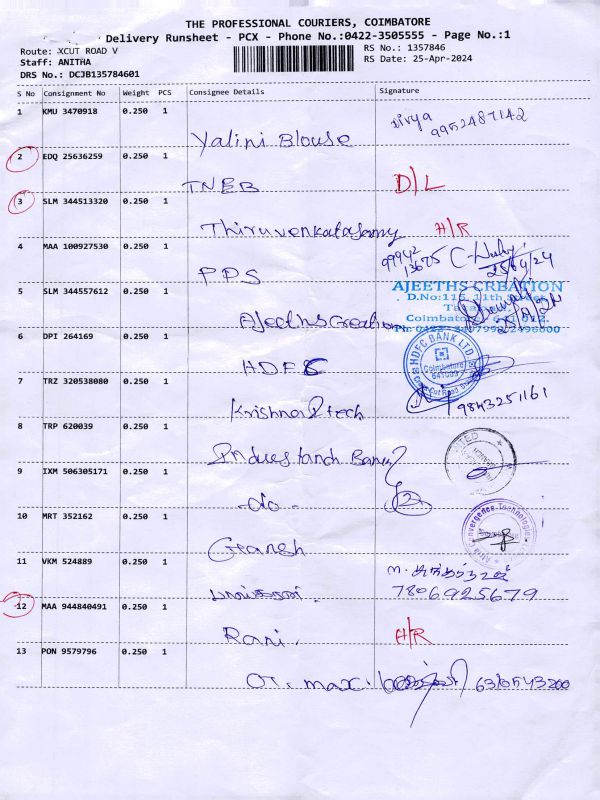 THE PROFESSIONAL COURIERS, COIMBATORE
Delivery Runsheet - PCX - Phone No.:0422-3505555 - Page No.:1
Route: XCUT ROAD V
RS No.: 1357846
Staff: ANITHA
RS Date: 25-Apr-2024
DRS No.: DCJB135784601
S No Consignment No Weight PCS Consignee Details Signature
1 KMU 3470918 0.250 1
9952487142
Yalini Blouse
2 EDQ 25636259 0.250 1
TNEB D/L
3 SLM 344513320 0.250 1
Thiruvenkatasamy H/R
4 MAA 100927530 0.250 1
99942
13675
25/04/24
PPS
AJEETHS CREATION
5 SLM 344557612 0.250 1
D.No:115, 11th
Ajeeths Creation
Coimbatore
6 DPI 264169 0.250 1
HDFC
HDFC BANK LTD.
Coimbatore
7 TRZ 320538080 0.250 1
Krishna
9843251161
8 TRP 620039 0.250 1
9 IXM 506305171 0.250 1
-do-
10 MRT 352162 0.250 1
Convergence Technologies
Ganesh
11 VKM 524889 0.250 1
7806925679
12 MAA 944840491 0.250 1
Rani. H/R
13 PON 9579796 0.250 1
OT. max.